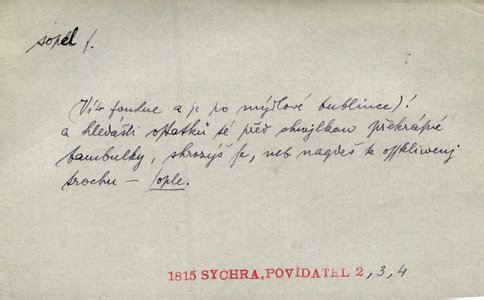 sopel f.
(Vítr foukne a je po mýdlové bublince)!
a hledášli ostatků té před chwjlkau překrásné
bambulky, skrogjš se, neb nagdeš k osskliwenj
trochu – sople.
1815 SYCHRA, POVÍDATEL 2, 3, 4